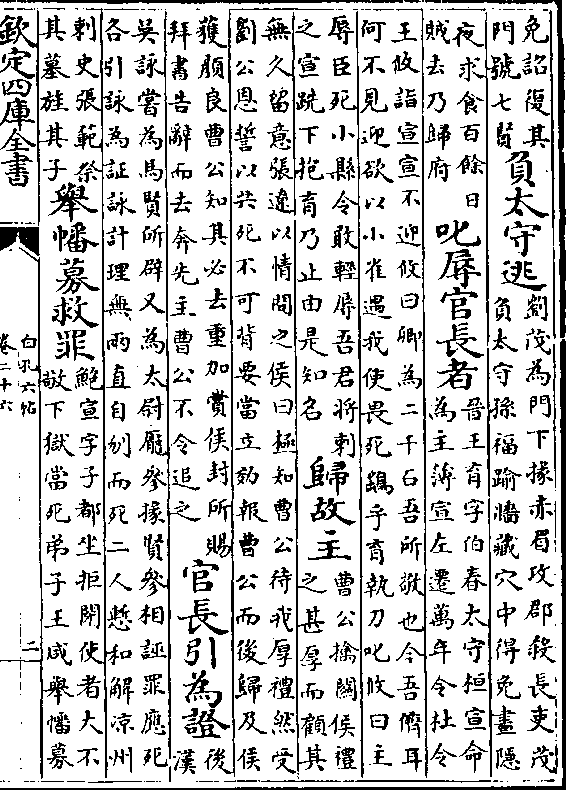 免詔復其
門號七賢
負太守逃
劉茂為門下掾赤眉攻郡殺長吏茂
負太守孫福踰牆藏穴中得免晝隱
夜求食百餘日
賊去乃歸府
叱辱官長者
晉王育字伯春太守桓宣命
為主簿宣左遷萬年令杜令
王攸詣宣宣不迎攸曰卿為二千石吾所敬也今吾儕耳
何不見迎欲以小雀遇我使畏死鷂乎育執刀叱攸曰主
辱臣死小縣令敢輕辱吾君將刺
之宣跣下抱育乃止由是知名
歸故主
曹公擒關侯禮
之甚厚而顧其
無久留意張遼以情問之侯曰極知曹公待我厚禮然受
劉公恩誓以共死不可背要當立効報曹公而後歸及侯
獲顏良曹公知其必去重加賞侯封所賜
拜書告辭而去奔先主曹公不令追之
官長引為證
後
漢
吳詠嘗為馬賢所辟又為太尉龐參掾賢參相誣罪應死
各引詠為証詠計理無兩直自刎而死二人慙和解凉州
刺史張範祭
其墓旌其子
舉幡募救罪
鮑宣字子都坐拒閉使者大不
敬下獄當死弟子王咸舉幡募
欽定四庫全書
白孔六帖
卷二十六
二